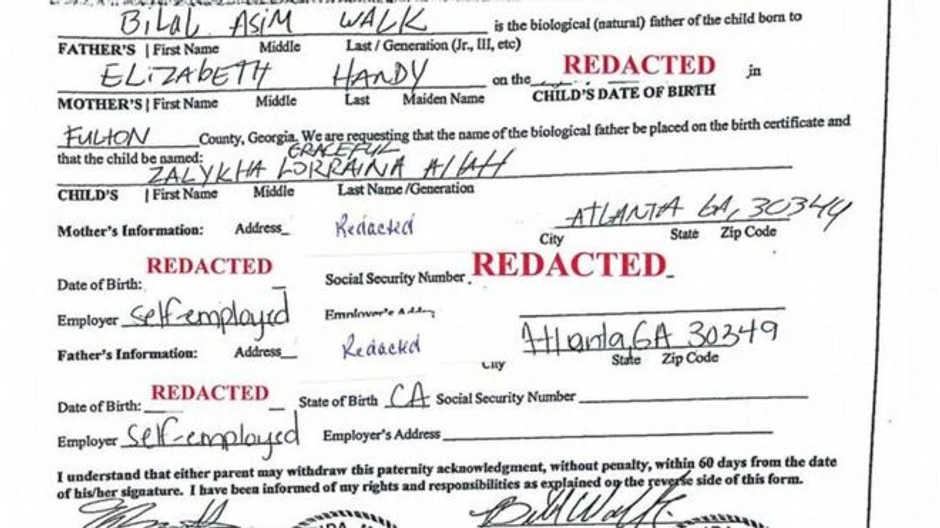 BILAL ASIM WALK is the biological (natural) father of the child born to
FATHER'S | First Name Middle Last / Generation (Jr., III, etc)
ELIZABETH HANDY on the REDACTED in
MOTHER'S | First Name Middle Last Maiden Name CHILD'S DATE OF BIRTH
FULTON County, Georgia. We are requesting that the name of the biological father be placed on the birth certificate and
that the child be named: GRACEFUL
ZALYKHA LORRAINA AllAH
CHILD'S | First Name Middle Last Name /Generation
ATLANTA GA, 30344
Mother's Information: Address Redacted City State Zip Code
Date of Birth: REDACTED Social Security Number REDACTED
Employer Self-employed Employer's
Father's Information: Address Redacted Atlanta, GA 30349
City State Zip Code
Date of Birth: REDACTED State of Birth CA Social Security Number
Employer Self-employed Employer's Address
I understand that either parent may withdraw this paternity acknowledgment, without penalty, within 60 days from the date
of his/her signature. I have been informed of my rights and responsibilities as explained on the reverse side of this form.